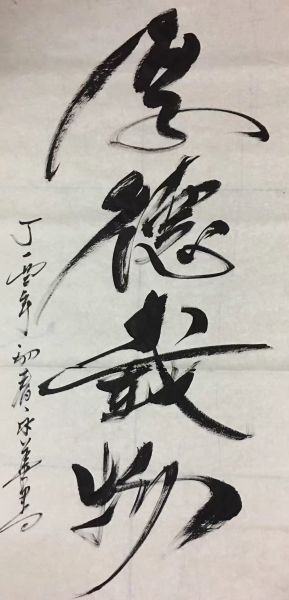 厚德载物
丁酉年初春